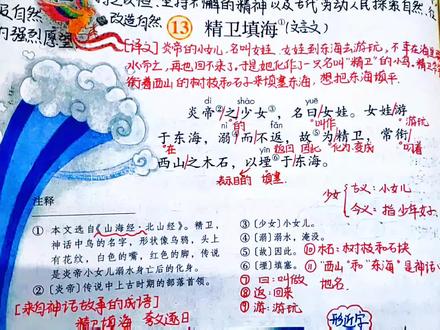 及自然
改造自然
的强烈愿望
13 精卫填海①(文言文)
[译文]炎帝的小女儿,名叫女娃。女娃到东海去游玩,
再也回不来了。
衔着西山的树枝和石子来填塞东海,想把东海填平。
dì shào yuē
炎帝②之少女③,名曰女娃。女娃游
的 叫作 游玩
nì fǎn
于东海,溺④而不返,故⑤为精卫,常衔
在 返回 因此 化为,变成 叼着
yīn
西山之木石,以堙⑥于东海。
表示目的 填塞
少女
古义:小女儿
今义:指少年女子
注释
① 本文选自《山海经·北山经》。精卫,
神话中鸟的名字,形状像乌鸦,头上
有花纹,白色的嘴,红色的脚,传说
是炎帝小女儿溺水身亡后的化身。
②〔炎帝〕传说中上古时期的部落首领。
③〔少女〕小女儿。
④〔溺〕溺水,淹没。
⑤〔故〕因此。
⑥〔堙〕填塞。
⑦曰:叫做
⑧返:回来
⑩木石:树枝和石块
⑪"西山"和"东海"是神话
地名。
[来自神话故事的成语]
精卫填海 夸父逐日
形近字